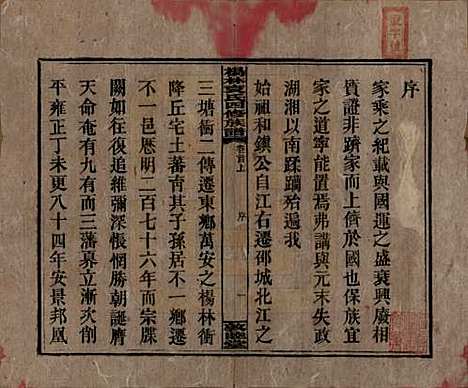 序
家乘之紀載與國運之盛衰興廢相
質證非躋家而上儕於國也保族宜
家之道寧能置焉弗講與元末失政
湖湘以南蹂躪殆遍我
始祖和鎮公自江右遷邵城北江之
楊林 氏四修族譜
卷首上
序
一
三塘衝二傳遷東鄉萬安之楊林衝
降丘宅土蕃衍其子孫居不一鄉遷
不一邑歷明二百七十六年而宗牒
闕如往復追維彌深悵惘勝朝誕膺
天命奄有九有而三藩裒立漸次削
平雍正丁未更八十四年安景邦鳳